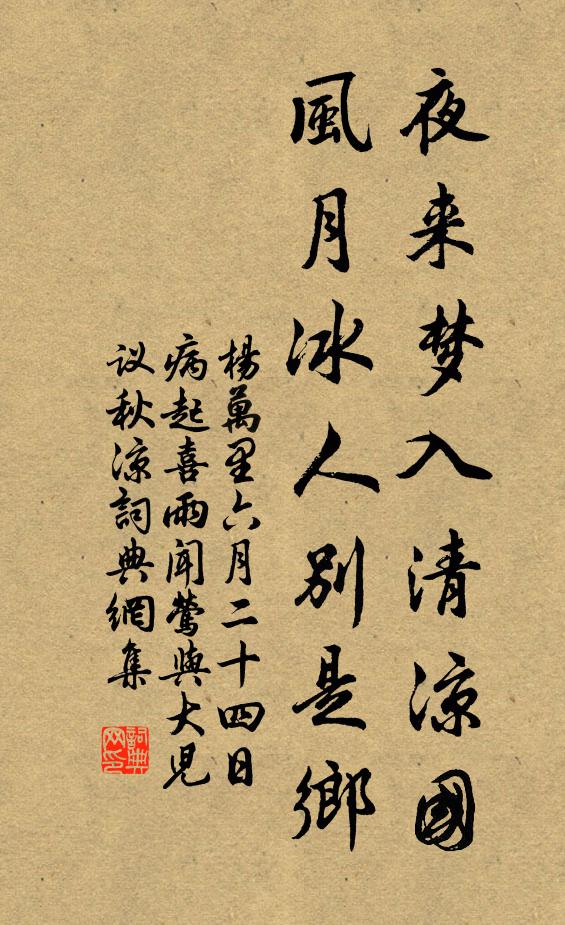 夜来梦入清凉國
風月冰人别是鄉
楊萬里六月二十四日
病起喜雨闻莺與大兒
议秋凉詞典網集
詞典
网印